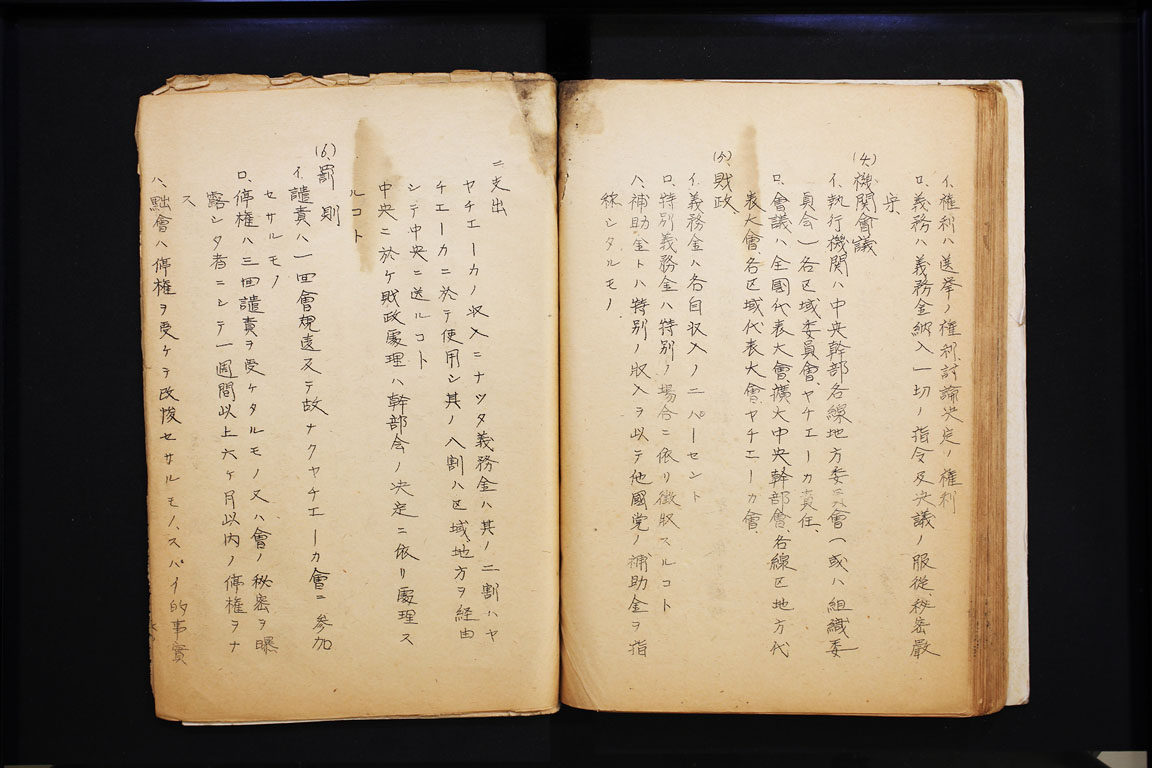 イ、権利ハ選挙ノ権利、討論決定ノ権利
ロ、義務ハ義務金納入一切ノ指令及決議ノ服従、秘密嚴
守、
(4)、機関會議
イ、執行機関ハ中央幹部各線地方委員會(或ハ組織委
員会)各区域委員會、ヤチエーカ責任、
ロ、會議ハ全國代表大會、擴大中央幹部會、各線区地方代
表大會、各区域代表大會、ヤチエーカ會、
(5)、財政
イ、義務金ハ各自収入ノ二パーセント
ロ、特別義務金ハ特別ノ場合ニ依リ徴収スルコト
ハ、補助金トハ特別ノ収入ヲ以テ他國党ノ補助金ヲ指
稱シタルモノ
ニ、支出
ヤチエーカノ収入ニナツタ義務金ハ其ノ二割ハヤ
チエーカニ於テ使用シ其ノ八割ハ区域地方ヲ経由
シテ中央ニ送ルコト
中央ニ於ケ財政處理ハ幹部会ノ決定ニ依リ處理ス
ルコト
(6)、罰則
イ、譴責ハ一回會規違及テ故ナクヤチエーカ會ニ参加
セサルモノ
ロ、停権ハ三回譴責ヲ受ケタルモノ又ハ會ノ秘密ヲ曝
露シタ者ニシテ一週間以上六ケ月以内ノ停権ヲナ
ス
ハ、黜會ハ停権ヲ受ケヲ改悛セサルモノ、スパイ的事實